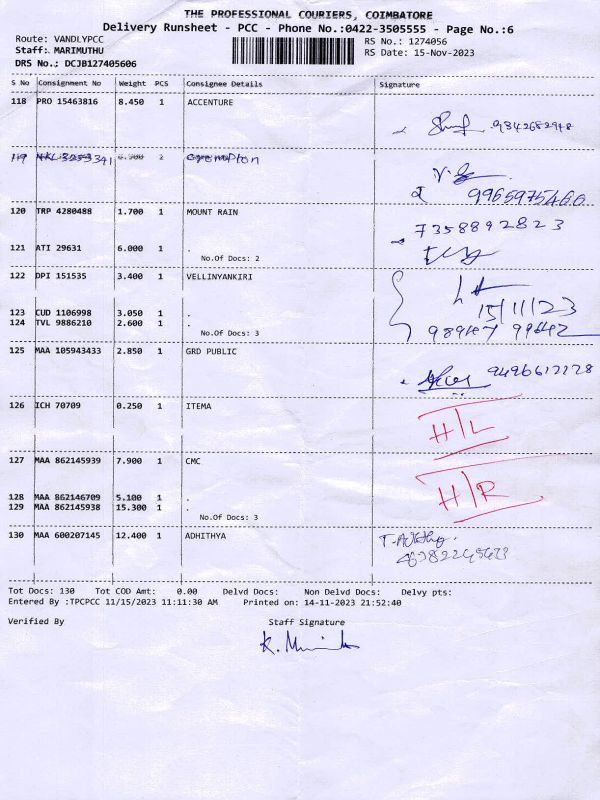 THE PROFESSIONAL COURIERS, COIMBATORE
Delivery Runsheet - PCC - Phone No.:0422-3505555 - Page No.:6
Route: VANDLYPCC
RS No.: 1274056
Staff: MARIMUTHU
RS Date: 15-Nov-2023
DRS No.: DCJB127405606
S No Consignment No Weight PCS Consignee Details Signature
118 PRO 15463816 8.450 1 ACCENTURE
9342682948
119 2 crompton
9965975460
120 TRP 4280488 1.700 1 MOUNT RAIN
7358892823
121 ATI 29631 6.000 1 .
No.Of Docs: 2
122 DPI 151535 3.400 1 VELLINYANKIRI
15/11/23
123 CUD 1106998 3.050 1 .
124 TVL 9886210 2.600 1 .
No.Of Docs: 3
125 MAA 105943433 2.850 1 GRD PUBLIC
9496612228
126 ICH 70709 0.250 1 ITEMA
H/L
127 MAA 862145939 7.900 1 CMC
H/R
128 MAA 862146709 5.100 1 .
129 MAA 862145938 15.300 1 .
No.Of Docs: 3
130 MAA 600207145 12.400 1 ADHITHYA
Tot Docs: 130 Tot COD Amt: 0.00 Delvd Docs: Non Delvd Docs: Delvy pts:
Entered By :TPCPCC 11/15/2023 11:11:30 AM Printed on: 14-11-2023 21:52:40
Verified By Staff Signature